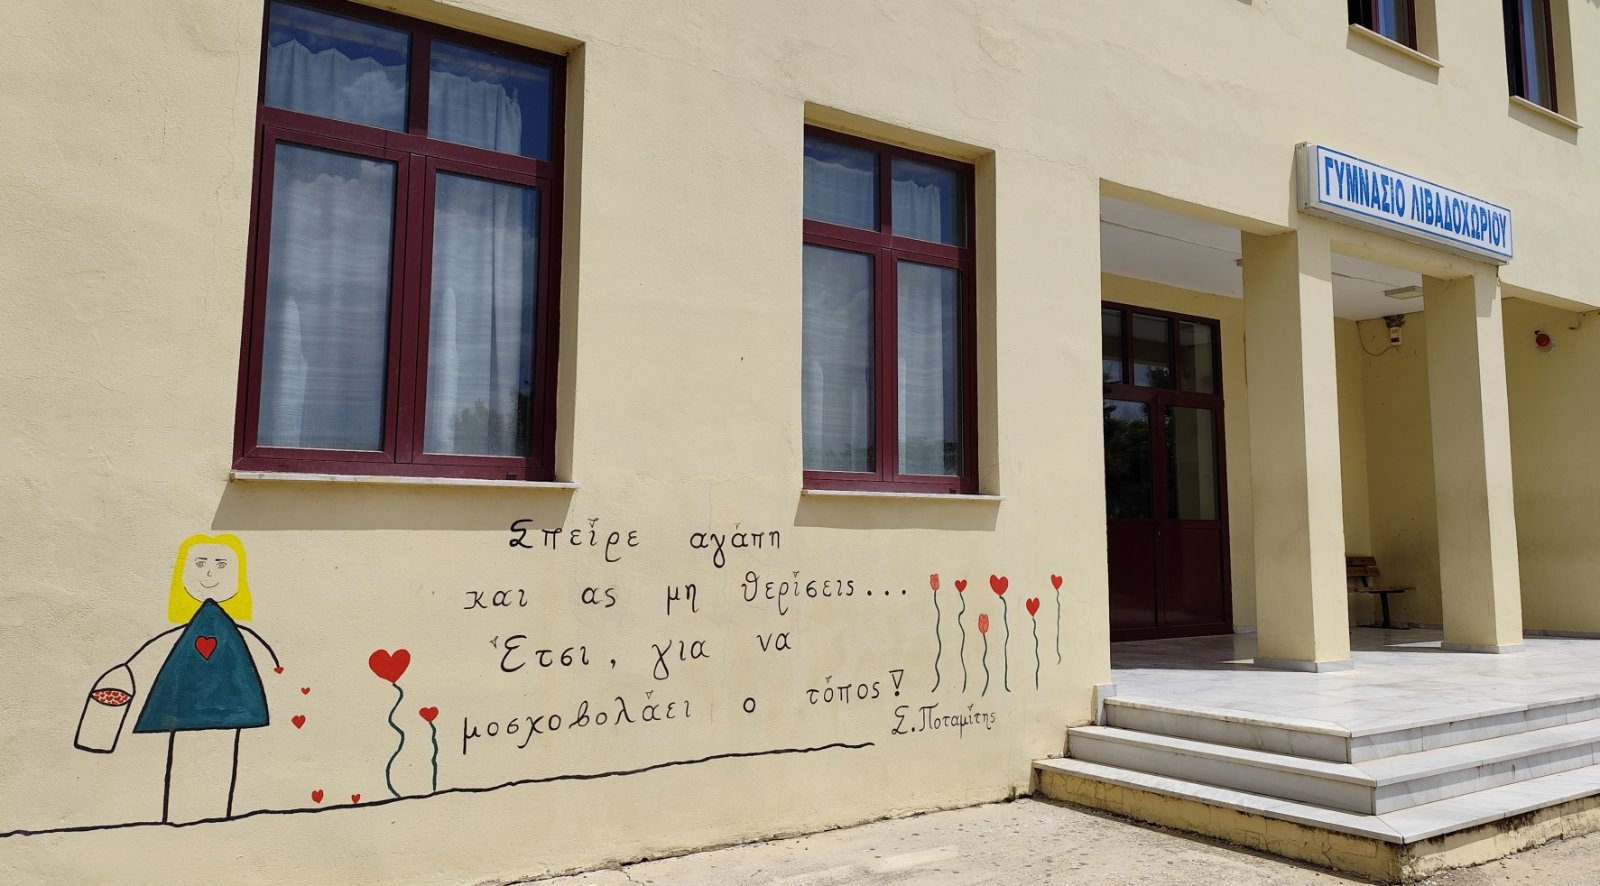 ΓΥΜΝΑΣΙΟ ΛΙΒΑΔΟΧΩΡΙΟΥ
Σπείρε αγάπη
και ας μη θερίσεις...
Έτσι, για να
μοσχοβολάει ο τόπος!
Σ. Ποταμίτης